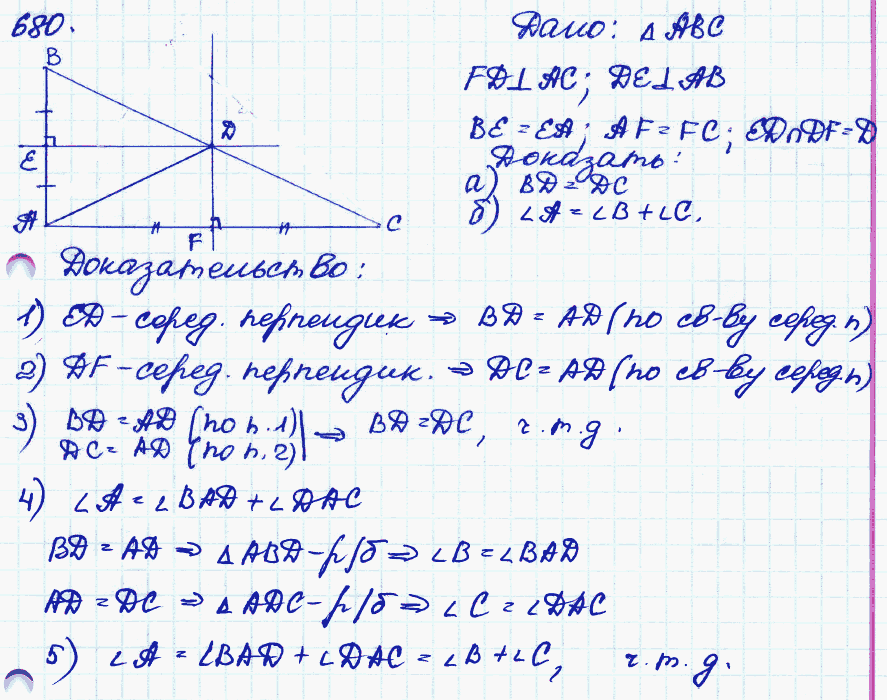 680.
B
D
E
A
F
C
Дано: △ ABC
FD⊥AC; DE⊥AB
BE = EA; AF = FC; ED∩DF = D
Доказать:
а) BD = DC
б) ∠A = ∠B + ∠C.
Доказательство:
1) ED – серед. перпендик ⇒ BD = AD (по св-ву серед.п)
2) DF – серед. перпендик. ⇒ DC = AD (по св-ву серед.п)
3) BD = AD (по п.1) | ⇒ BD = DC, ч.т.д.
DC = AD (по п.2)
4) ∠A = ∠BAD + ∠DAC
BD = AD ⇒ △ ABD – р/б ⇒ ∠B = ∠BAD
AD = DC ⇒ △ ADC – р/б ⇒ ∠C = ∠DAC
5) ∠A = ∠BAD + ∠DAC = ∠B + ∠C, ч.т.д.